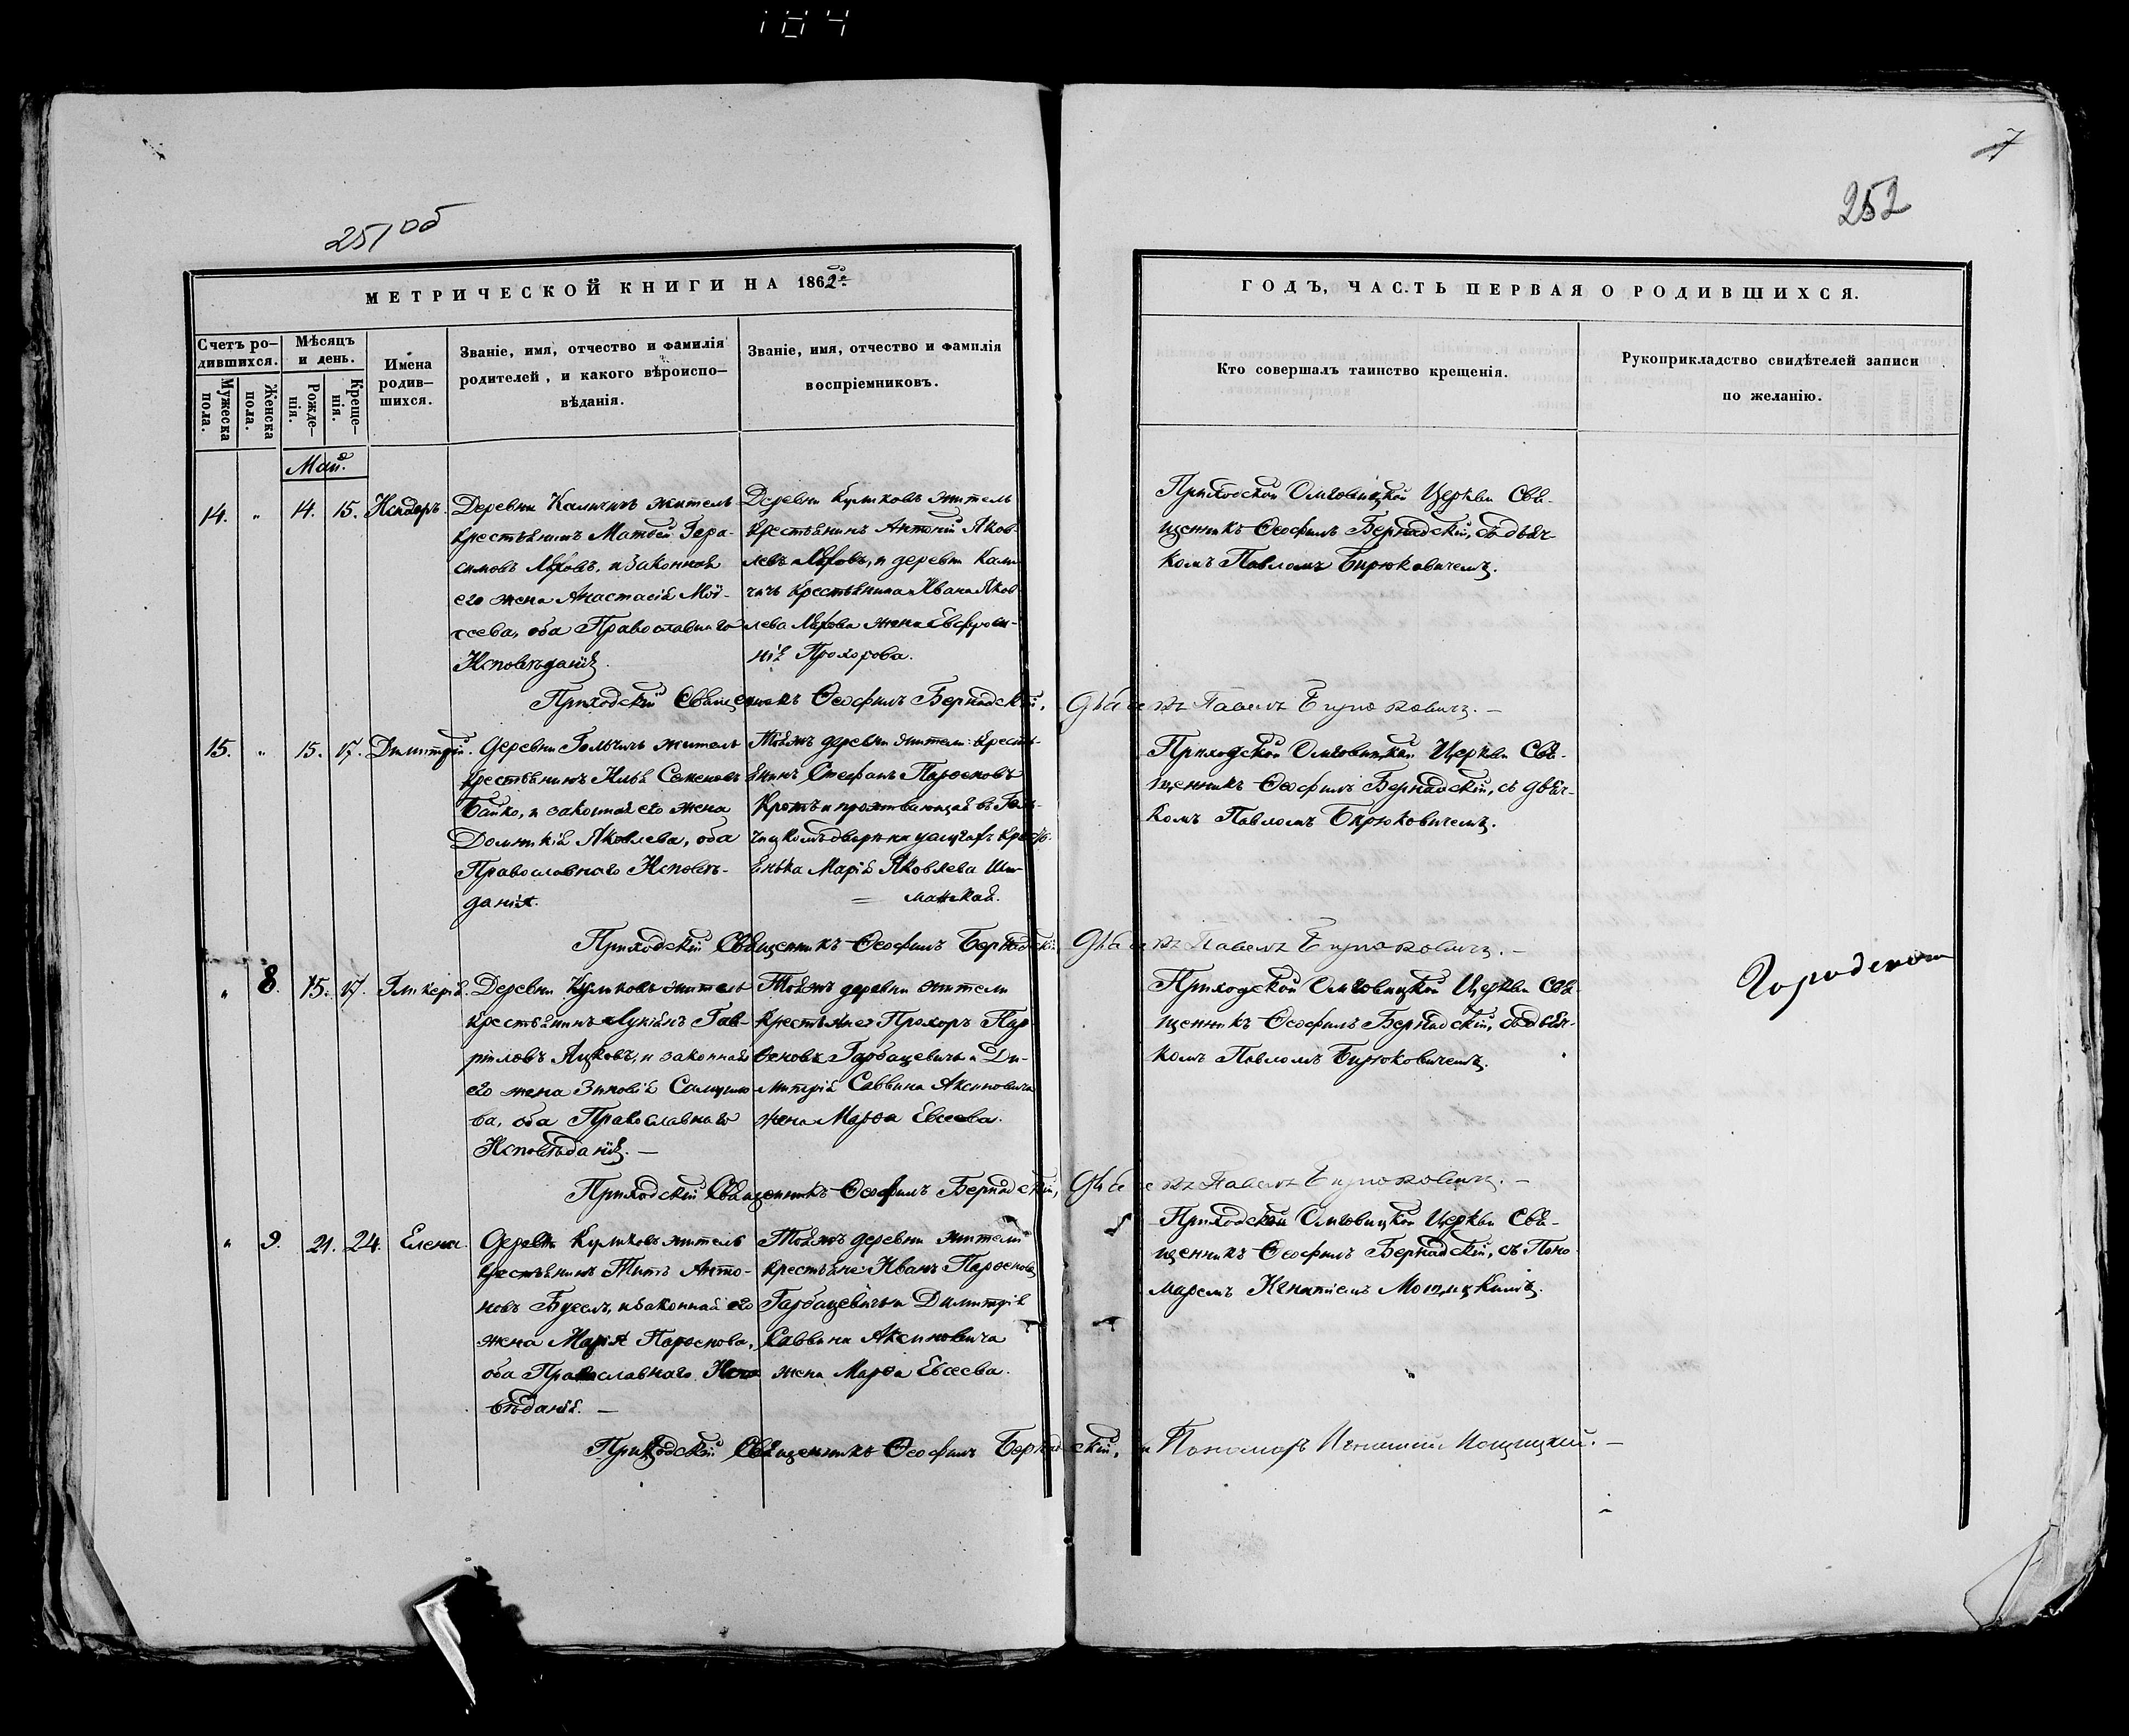 184
7
251об
252
МЕТРИЧЕСКОЙ КНИГИ НА 1862
ГОДЪ, ЧАСТЬ ПЕРВАЯ О РОДИВШИХСЯ.
Счетъ ро-
дившихся.
Мужеска
пола.
Женска
пола.
Мѣсяцъ
и день.
Рожде-
нія.
Креще-
нія.
Имена
родив-
шихся.
Званіе, имя, отчество и фамилія
родителей, и какого вѣроиспо-
вѣданія.
Званіе, имя, отчество и фамилія
воспріемниковъ.
Кто совершалъ таинство крещенія.
Рукоприкладство свидѣтелей записи
по желанію.
Май.
14. „ 14. 15. Исидоръ.
Деревни житель
крестьянинъ Матѳей Гера-
симовъ и законная
его жена Анастасія Мои-
сеева, оба Православнаго
Исповѣданія.
Деревни Куликовъ житель
крестьянинъ Антоній Яков-
левъ и деревни
крестьянина Ивана Яков
лева жена Евфроси-
нія Прохорова.
Приходской Церкви Свя-
щенникъ Ѳеофилъ Бернадскій, съ дьяч-
комъ Павломъ Бирюковичемъ.
Приходскій Священникъ Ѳеофилъ Бернадскій, Дьячекъ Павелъ Бирюковичъ. —
15. „ 15. 17. Димитрій.
Деревни житель
крестьянинъ Илья Семеновъ
Байко, и законная его жена
Домникія Яковлева, оба
Православнаго Исповѣ-
данія.
Тояжъ деревни жители: кресть-
янинъ Стефанъ Парѳеновъ
и проживающая въ
Марія Яковлева
Приходской Церкви Свя-
щенникъ Ѳеофилъ Бернадскій, съ дьяч-
комъ Павломъ Бирюковичемъ.
Приходскій Священникъ Ѳеофилъ Бернадскій, Дьячекъ Павелъ Бирюковичъ. —
„ 8. 15. 17. Гликерія.
Деревни Куликовъ житель
крестьянинъ Лукіянъ Гав-
риловъ Яцковъ, и законная
его жена Зиновія Самуило
ва, оба Православнаго
Исповѣданія. —
Тояжъ деревни жители
крестьяне Прохоръ Пар
ѳеновъ Гарбацевичъ и Ди-
митрія Саввина Аксиновича
жена Марѳа Евсеева.
Приходской Церкви Свя-
щенникъ Ѳеофилъ Бернадскій, съ дьяч-
комъ Павломъ Бирюковичемъ.
Приходскій Священникъ Ѳеофилъ Бернадскій, Дьячекъ Павелъ Бирюковичъ. —
„ 9. 21. 24. Елена.
Деревни Куликовъ житель
крестьянинъ Титъ Анто-
новъ Бусел, и законная его
жена Марія Парѳенова,
оба Православнаго Испо
вѣданія. —
Тояжъ деревни жители
крестьяне: Иванъ Парѳеновъ
Гарбацевичъ и Димитрія
Саввина Аксиновича
жена Марѳа Евсеева.
Приходской Церкви Свя-
щенникъ Ѳеофилъ Бернадскій, съ Поно
маремъ Игнатіемъ
Приходскій Священникъ Ѳеофилъ Бернадскій, и Пономарь Игнатій